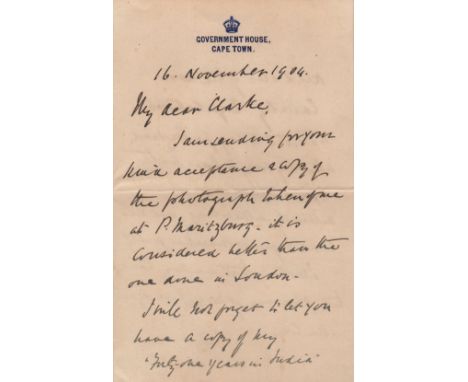 GOVERNMENT HOUSE,
CAPE TOWN.
16. November 1904.
My dear Clarke,
I am sending for your
kind acceptance a copy of
the photograph taken of me
at P. Maritzburg - it is
considered better than the
one done in London -
I will not forget to let you
have a copy of my
'Forty-one years in India'